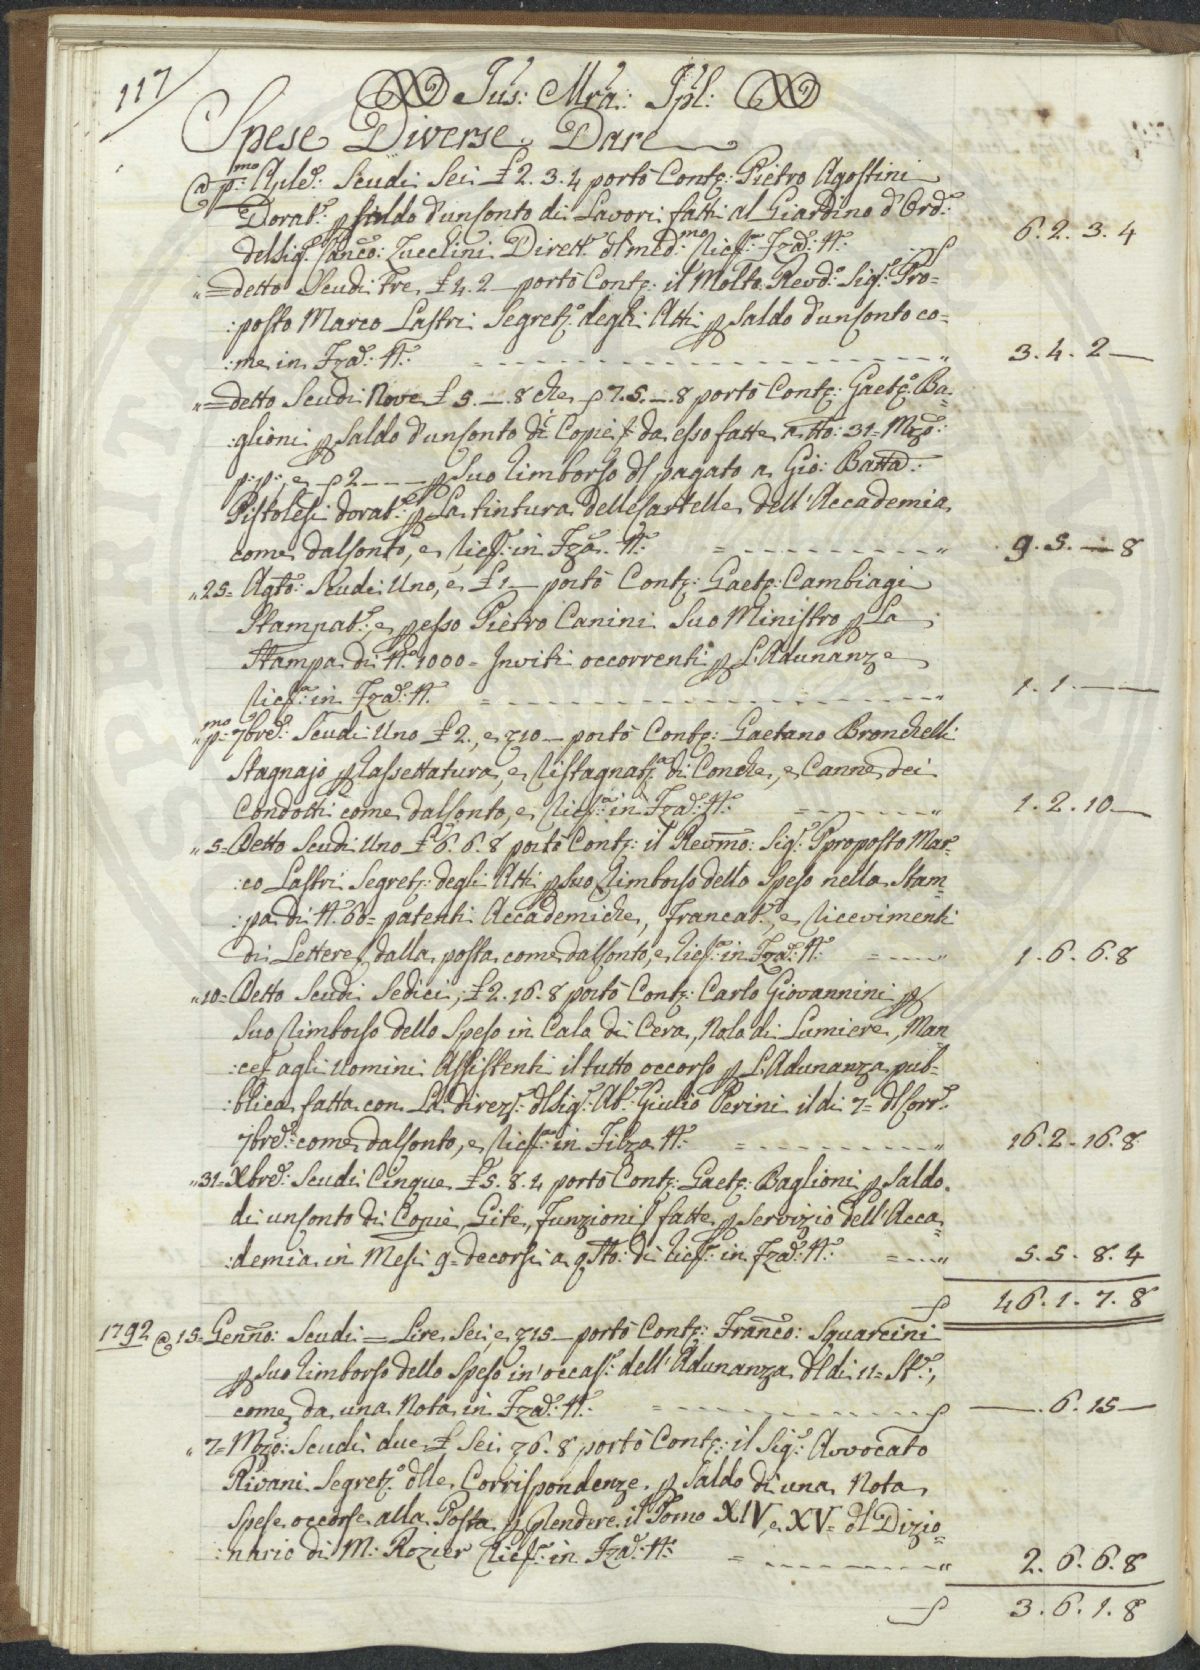 117
Jus: Mra: Jpl:
Spese Diverse Dare
@ pmo: Aple: Scudi Sei £ 2.3.4 portò Contj: Pietro Agostini
Dorat.e p saldo d'un Conto di Lavori fatti al Giardino d'Ord.e
del Sig.e Franco: Zucchini Dirett.e dl med.mo Ricf.a Fza: N: 6.2.3.4
„ = detto Scudi Tre £ 4.2 – portò Contj: il Molto Revd.o Sig.e Pro=
:posto Marco Lastri Segretj.o degli Atti p saldo d'un Conto co=
:me in Fza: N: 3.4.2 —
„ = detto Scudi Nove £ 5.—.8 che 7.5.—.8 portò Contj: Gaetj.o Ba=
:glioni p saldo d'un Conto di Copie da esso fatte a tto: 31= Mzo:
p:p:, e 2 — — — p suo rimborso dl pagato a Gio: Batta:
Pistolesi dorat.e p La tintura delle Cartelle dell'Accademia
come dal Conto, e Ricf.a in Fza: N: 9.5.—8
„ 25= Agto: Scudi Uno, e £ 1 — portò Contj: Gaetj: Cambiagi
Stampat.e, e p esso Pietro Canini Suo Ministro p La
Stampa di N.o 1000= Inviti occorrenti p L'Adunanze
Ricf.a in Fza: N: 1.1.—
„ pmo: 7bre: Scudi Uno £ 2., e 10 — portò Contj: Gaetano Bronchelli
Stagnajo p Rassettatura, e Ristagnatj.a di Conche, e Canne dei
Condotti come dal Conto, e Ricf.a in Fza: N: 1.2.10 —
„ 5= Detto Scudi Uno £ 6.6.8 portò Contj: il Revmo: Sig.e Pproposto Mar=
:co Lastri Segretj: degli Atti p suo Rimborso dello Speso nella Stam=
:pa di N. 60= patenti Accademiche, Francat.e, e ricevimenti
di Lettere dalla posta come dal Conto, e Ricf.a in Fza: N: 1.6.6.8
„ 10= Detto Scudi Sedici, £ 2.16.8 portò Contj: Carlo Giovannini p
Suo Rimborso dello Speso in Calo di Cera, Nolo di Lumiere, Man=
:ce agli Uomini Assistenti il tutto occorso p L'Adunanza pub=
:blica fatta con La direz.e dl Sig.e Ab.e Giulio Perini il di 7= dl Corr.e
7bre: come dal Conto, e Ricf.a in Filza N: 16.2.16.8
„ 31= Xbre: Scudi Cinque £ 5.8.4 portò Contj: Gaetj: Baglioni p saldo
di un Conto di Copie, Gite, Funzioni fatte p servizio dell'Acca=
:demia in Mesi 9= decorsi a q.sto: di Ricf.a in Fza: N: 5.5.8.4
46.1.7.8
1792 @ 15= Genno: Scudi — Lire Sei, e 15 — portò Contj: Franco: Squarcini
p suo rimborso dello Speso in occas.e dell'Adunanza dl di 11= St.e,
come da una Nota in Fza: N: —.6.15 —
„ 7= Mzo: Scudi due £ Sei 6.8 portò Contj: il Sig.e Avvocato
Rivani Segretj.o dlle Corrispondenze p saldo di una Nota
Spese occorse alla Posta p Rendere il Tomo XIV, e XV= dl Dizio=
:nario di M: Rozier Ricf.a in Fza: N: 2.6.6.8
3.6.1.8